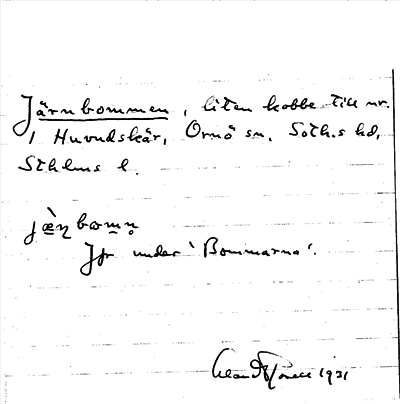 Järnbommen, liten kobbe till nr.
1 Huvudskär, Ornö sn. Soth.s hd,
Sthlms l.
jæ̀ɳbωmn̥
Jfr under 'Bommarna'.
1931